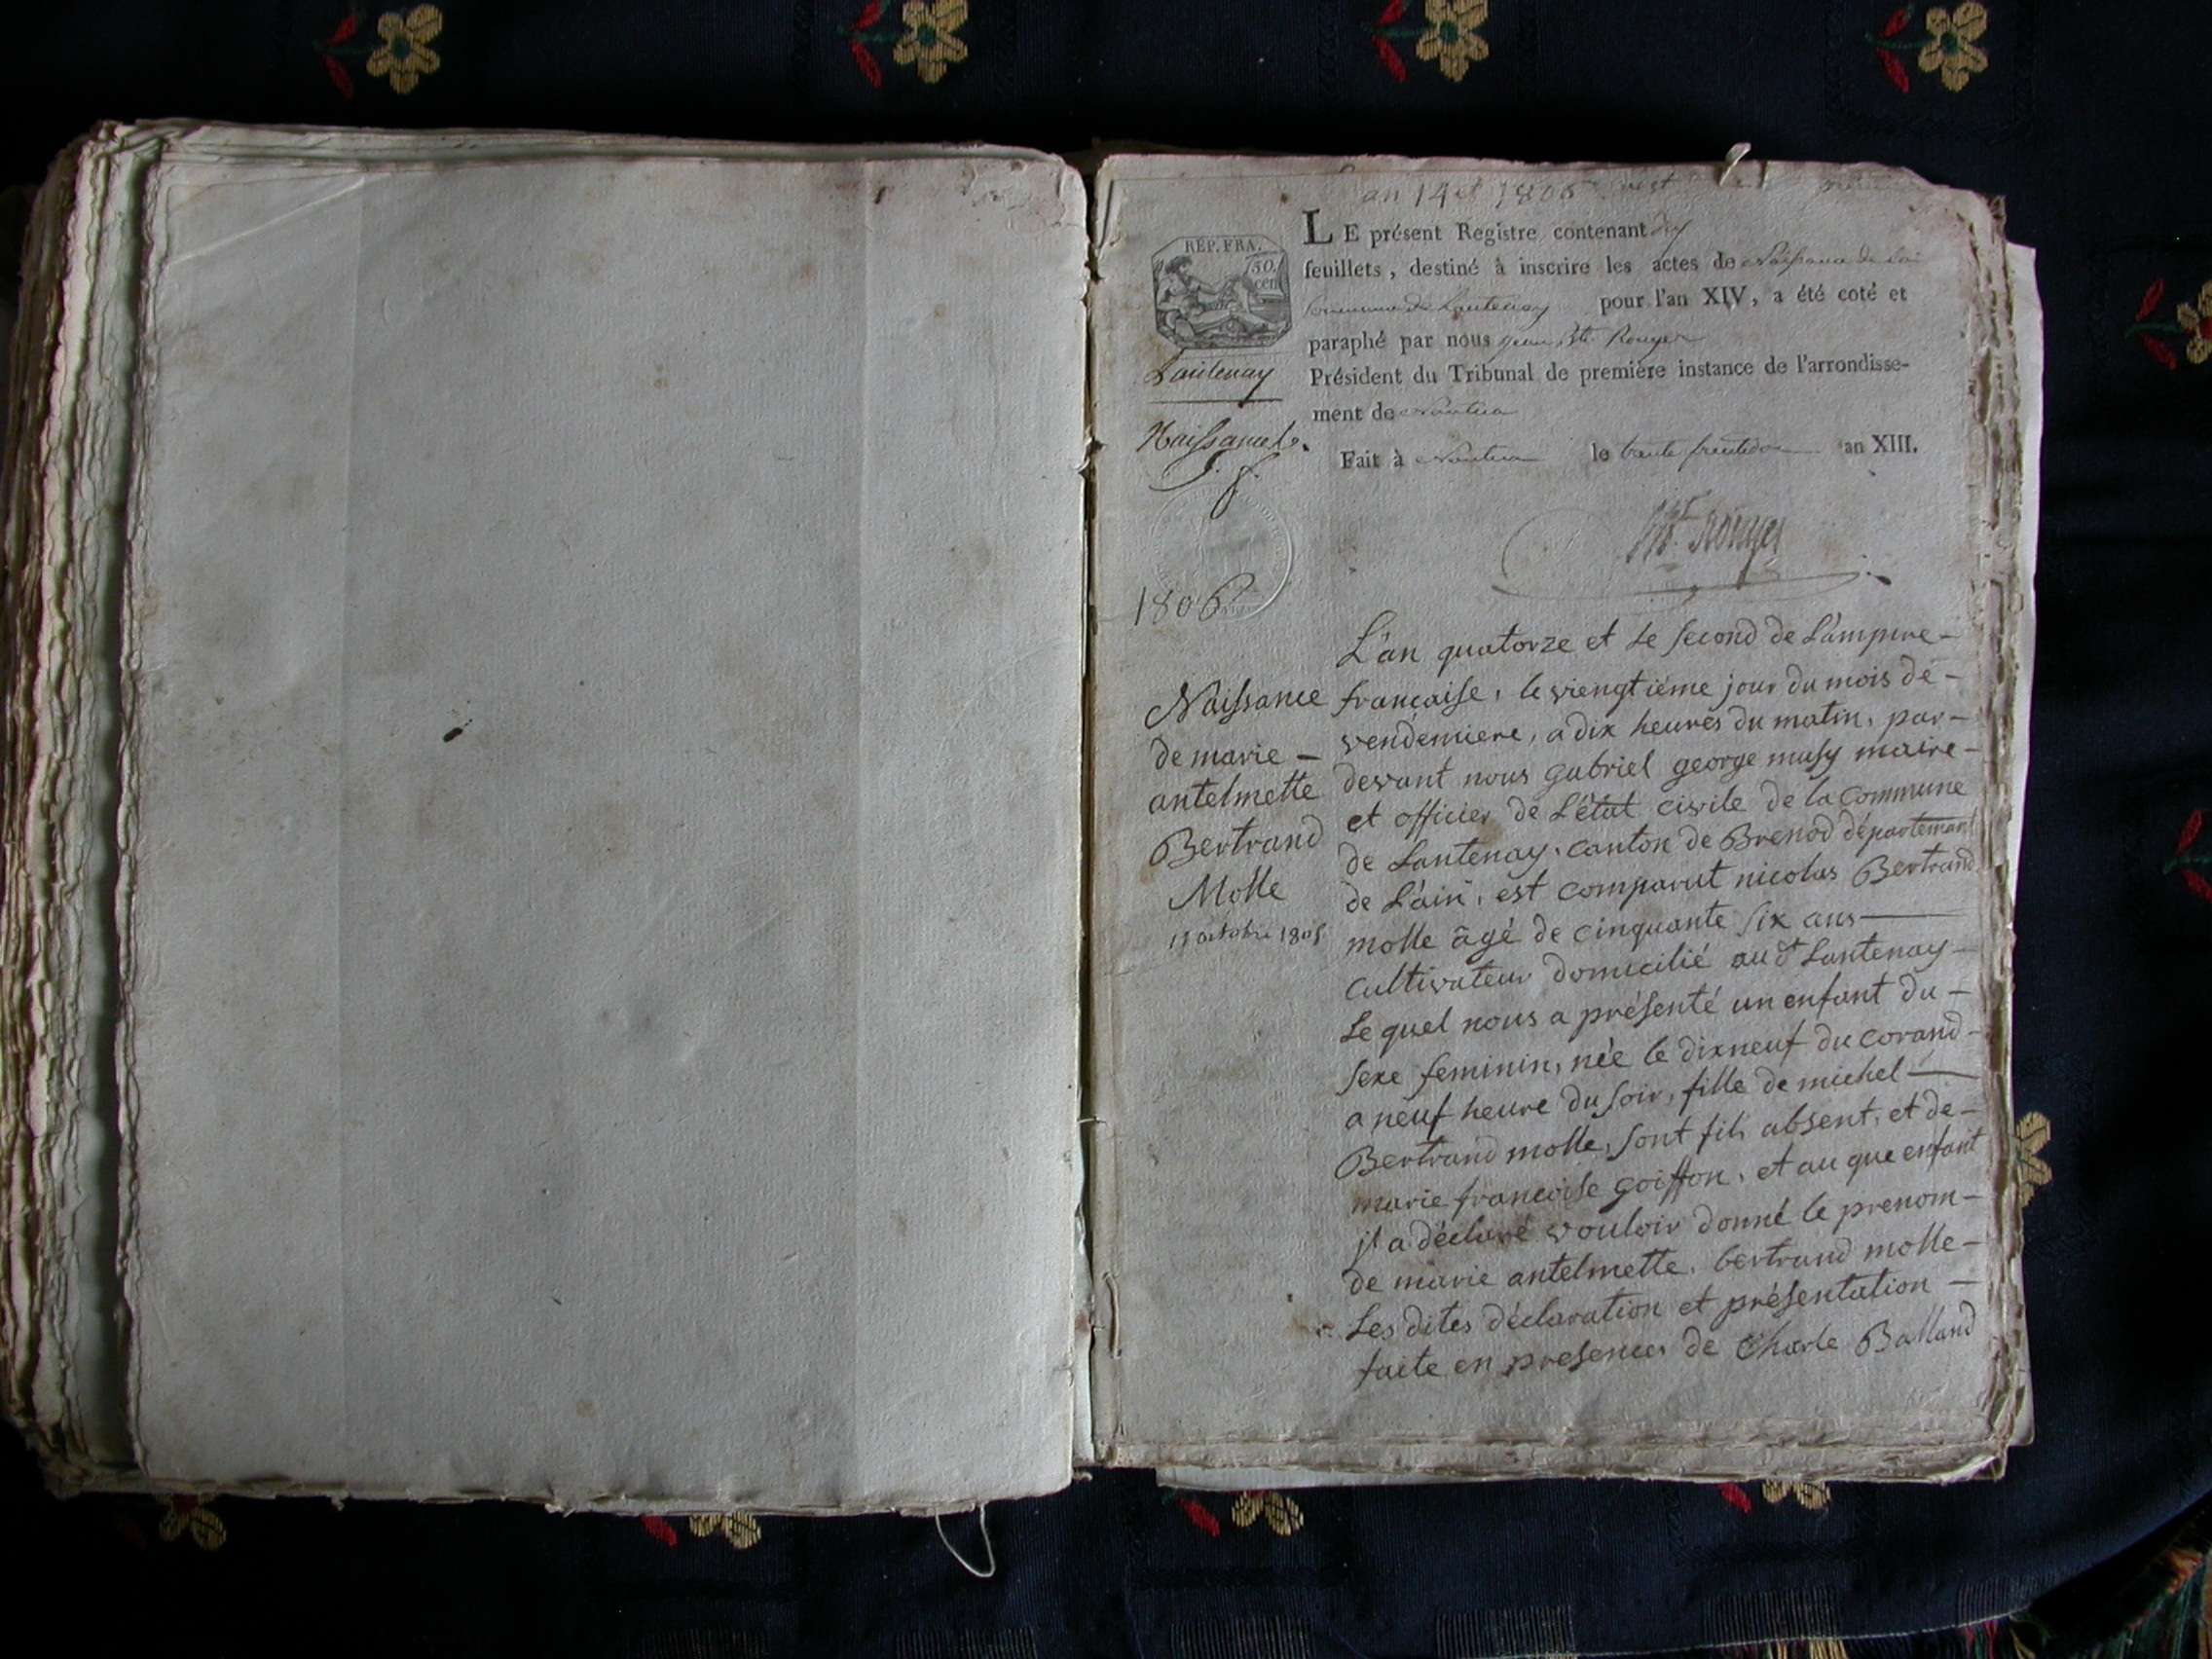 an 14 et 1806
LE présent Registre contenant dix
feuillets, destiné à inscrire les actes de Naissance de la
Commune de Lantenay pour l'an XIV, a été coté et
paraphé par nous jean Bte Rouyer
Président du Tribunal de première instance de l'arrondisse-
ment de Nantua
Fait à Nantua le trente fructidor an XIII.
REP. FRA.
50.
cen
Lantenay
Naissances.
1806
Naissance
de marie -
antelmette
Bertrand
Molle
11 octobre 1805
L'an quatorze et le second de L'ampire -
francaise, le viengtiéme jour du mois de -
vendemiere, a dix heures du matin, par -
devant nous gabriel george musy maire -
et officier de L'état civile de la commune
de Lantenay, canton de Brenod départemant
de L'ain, est comparut nicolas Bertrand
molle âgé de cinquante six ans
cultivateur domicilié audt Lantenay -
Le quel nous a présenté un enfant du -
sexe feminin, née le dixneuf du corand -
a neuf heure du soir, fille de michel
Bertrand molle, sont fils absent, et de -
marie francoise goiffon, et au que enfant
jl a déclaré vouloir donné le prenom -
de marie antelmette, bertrand molle -
Les dites déclaration et présentation -
faite en presences de Charle Balland